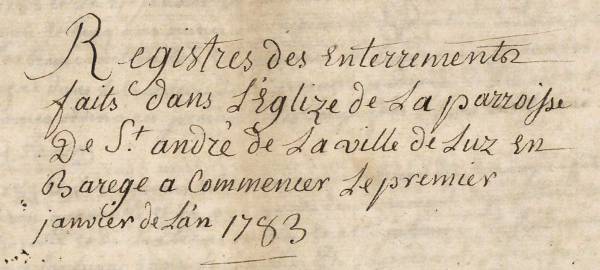 Registres des Enterrements
faits dans L'Église de La parroisse
De S.t andré de La ville de Luz En
Barege a Commencer Le premier
janvier de L'an 1783